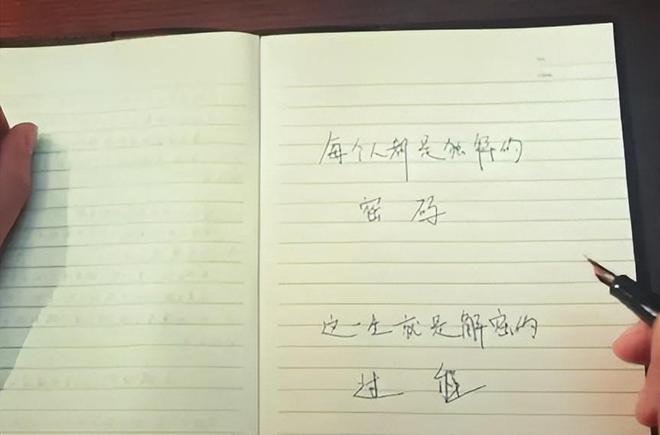 每个人都是难解的
密码
这一生就是解密的
过程